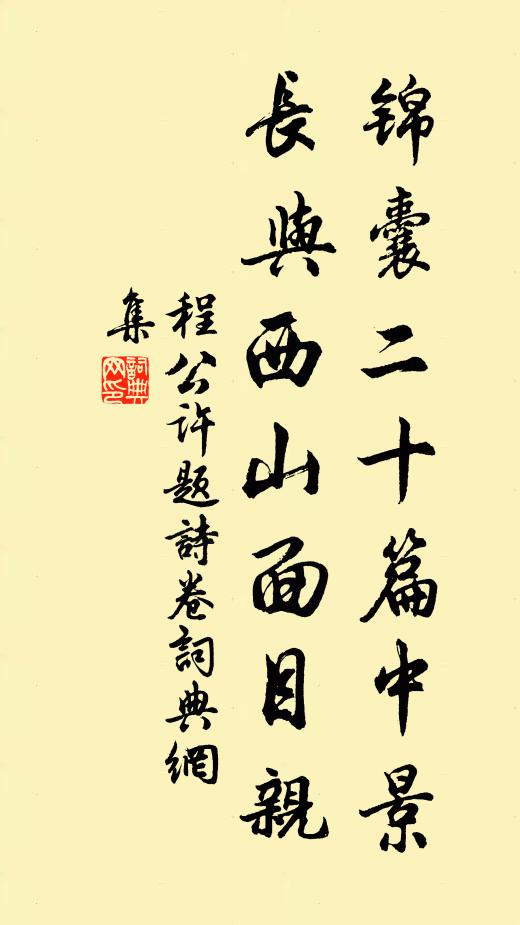 锦囊二十篇中景
長與西山面目親
程公许题詩卷詞典網
集
詞典
网印